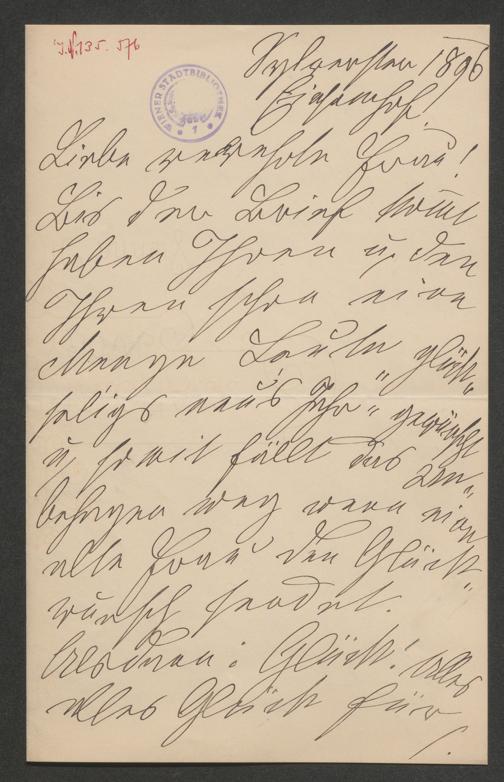 J.N. 135.576
WIENER STADTBIBLIOTHEK
Sylvester 1896
Liebe verehrte Frau!
Bis der Brief kom̄t
haben Ihnen u. den
Ihren schon eine
Menge Leute „glück-
seligs neu's Jahr“ gewünscht
u. somit fällt das Un-
behagen weg wenn eine
alte Frau den Glück-
wunsch sendet.
Glück! alles
alles Glück für
/.